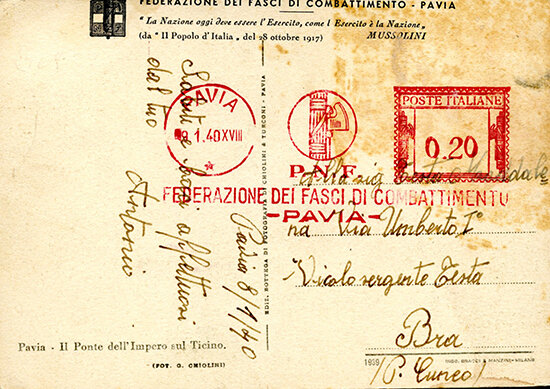 FEDERAZIONE DEI FASCI DI COMBATTIMENTO - PAVIA
"La Nazione oggi deve essere l'Esercito, come l Esercito è la Nazione,,
(da "Il Popolo d'Italia,, del 28 ottobre 1917) MUSSOLINI
Saluti e baci affettuosi
dal tuo
Antonio
Pavia 8/1/40
PAVIA
1.40XVIII
P.N.F.
POSTE ITALIANE
0.20
FEDERAZIONE DEI FASCI DI COMBATTIMENTO
-PAVIA-
EDIT. BOTTEGA DI FOTOGRAFIA DI CHIOLINI & TURCONI - PAVIA
Alla sig Testa
na Via Umberto I°
Vicolo sergente Testa
Bra
(P. Cuneo)
Pavia - Il Ponte dell'Impero sul Ticino.
(FOT. G. CHIOLINI)
1939